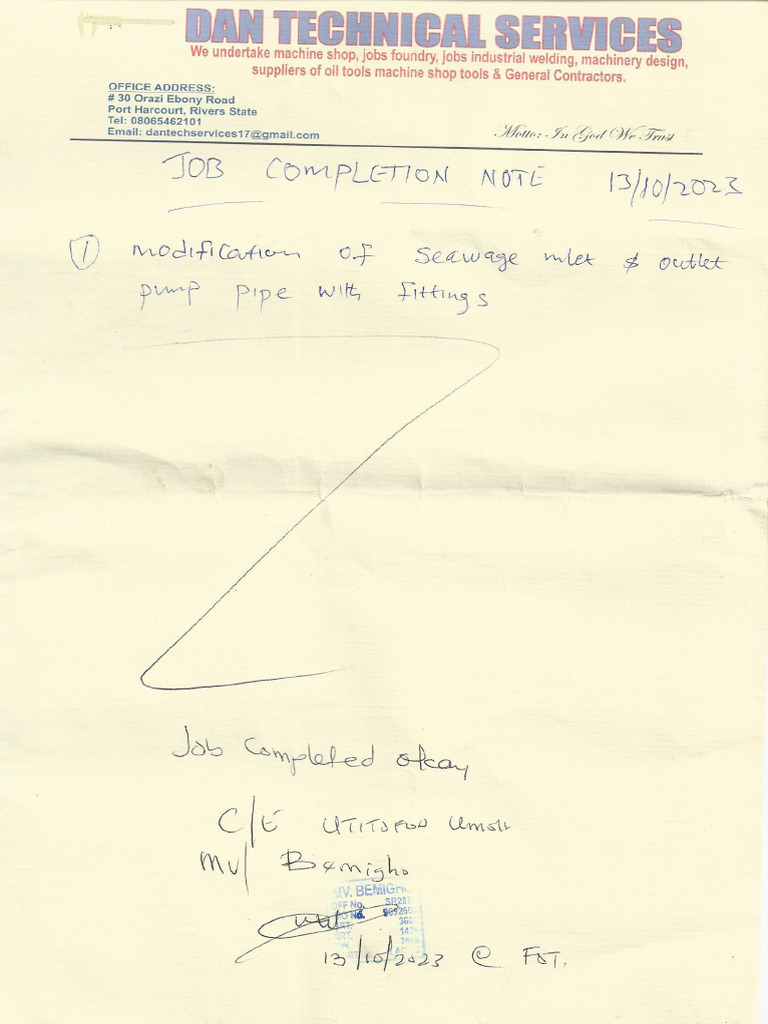 DAN TECHNICAL SERVICES
We undertake machine shop, jobs foundry, jobs industrial welding, machinery design,
suppliers of oil tools machine shop tools & General Contractors.
OFFICE ADDRESS:
# 30 Orazi Ebony Road
Port Harcourt, Rivers State
Tel: 08065462101
Email: dantechservices17@gmail.com
Motto: In God We Trust
JOB COMPLETION NOTE 13/10/2023
① modification of seawage inlet & outlet
pump pipe with fittings
Job Completed okay
C/E
MV/ Bemigho
MV. BEMIGH
OFF No. SR287
No.
13/10/2023 @ FOT.